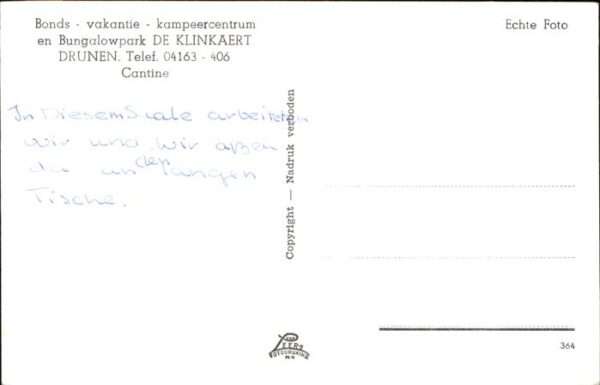 Bonds - vakantie - kampeercentrum
en Bungalowpark DE KLINKAERT
DRUNEN. Telef. 04163 - 406
Cantine
Echte Foto
In Diesem Saale arbeiteten
wir und wir aßen
da an den langen
Tische.
Copyright — Nadruk verboden
364